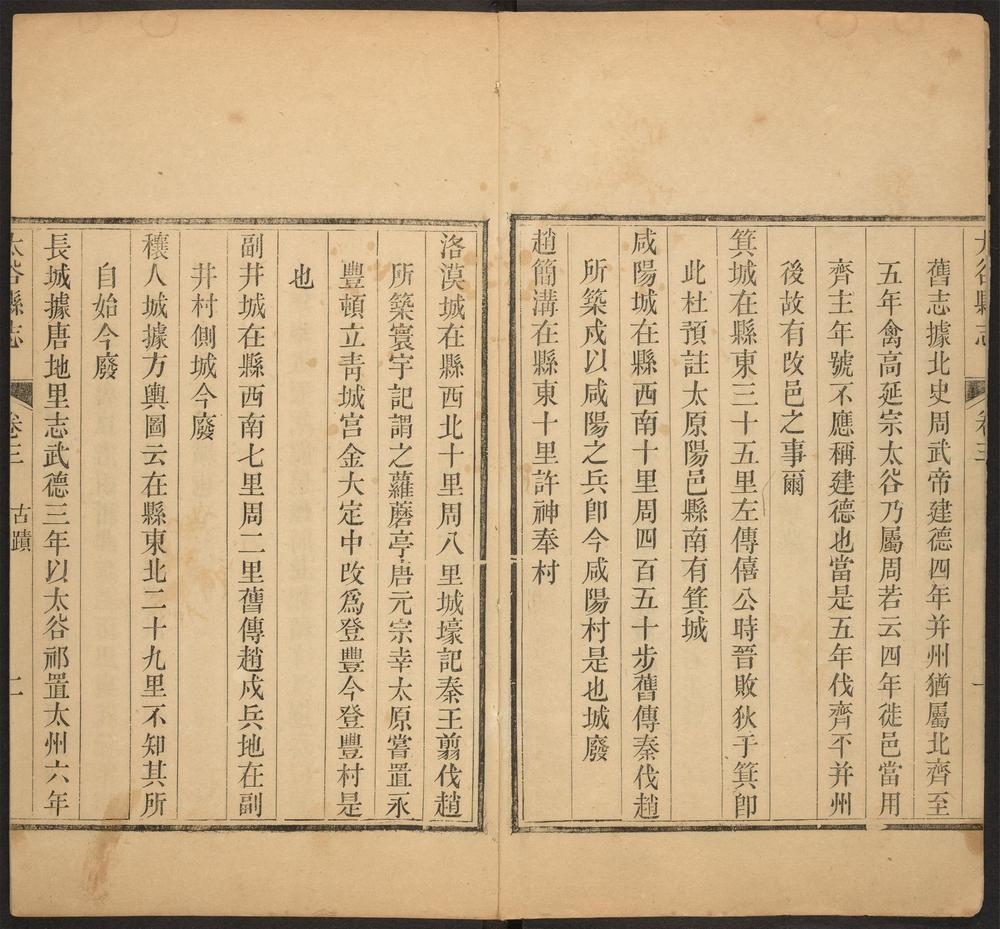 太谷縣志 卷三 一
舊志據北史周武帝建德四年并州猶屬北齊至
五年禽高延宗太谷乃屬周若云四年徙邑當用
齊主年號不應稱建德也當是五年伐齊不并州
後故有改邑之事爾
箕城在縣東三十五里左傳僖公時晉敗狄于箕卽
此杜預註太原陽邑縣南有箕城
咸陽城在縣西南十里周四百五十步舊傳秦伐趙
所築戍以咸陽之兵卽今咸陽村是也城廢
趙簡溝在縣東十里許神奉村
洛漠城在縣西北十里周八里城壕記秦王翦伐趙
所築寰宇記謂之蘿蘑亭唐元宗幸太原嘗置永
豐頓立靑城宮金大定中改爲登豐今登豐村是
也
副井城在縣西南七里周二里舊傳趙戍兵地在副
井村側城今廢
穰人城據方輿圖云在縣東北二十九里不知其所
自始今廢
長城據唐地里志武德三年以太谷祁置太州六年
太谷縣志 卷三 古蹟 二